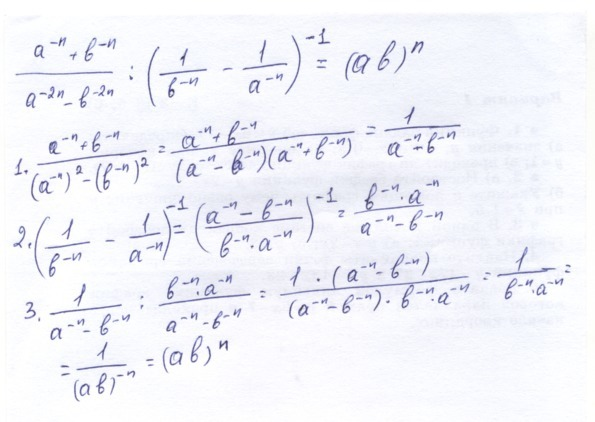 (a⁻ⁿ + b⁻ⁿ)/(a⁻²ⁿ − b⁻²ⁿ) : (1/b⁻ⁿ − 1/a⁻ⁿ)⁻¹ = (ab)ⁿ
1. (a⁻ⁿ + b⁻ⁿ)/((a⁻ⁿ)² − (b⁻ⁿ)²) = (a⁻ⁿ + b⁻ⁿ)/((a⁻ⁿ − b⁻ⁿ)(a⁻ⁿ + b⁻ⁿ)) = 1/(a⁻ⁿ − b⁻ⁿ)
2. (1/b⁻ⁿ − 1/a⁻ⁿ)⁻¹ = ((a⁻ⁿ − b⁻ⁿ)/(b⁻ⁿ · a⁻ⁿ))⁻¹ = (b⁻ⁿ · a⁻ⁿ)/(a⁻ⁿ − b⁻ⁿ)
3. 1/(a⁻ⁿ − b⁻ⁿ) : (b⁻ⁿ · a⁻ⁿ)/(a⁻ⁿ − b⁻ⁿ) = (1 · (a⁻ⁿ − b⁻ⁿ))/((a⁻ⁿ − b⁻ⁿ) · b⁻ⁿ · a⁻ⁿ) = 1/(b⁻ⁿ · a⁻ⁿ) =
= 1/(ab)⁻ⁿ = (ab)ⁿ